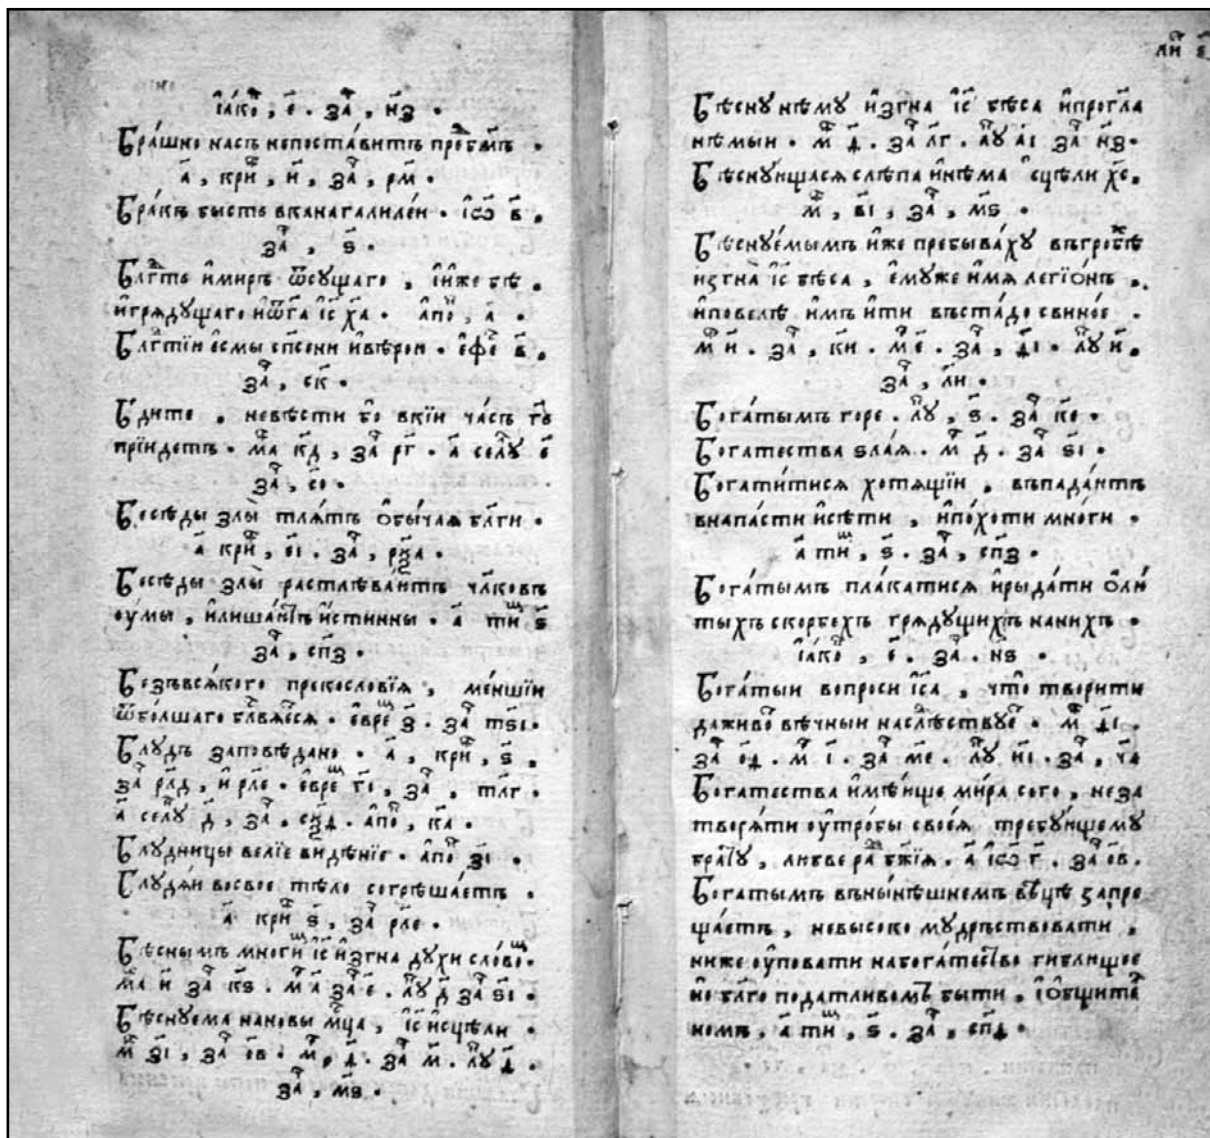 іа́кѡ , е҃ . за , нз .
Бра́шно насъ непоста́витъ пре́дбг҃мъ .
а҃ , кри , и҃ , за , рм҃ .
Бра́къ бысть вканагалиле́и . іѡ в҃ .
за , ѕ҃ .
Блгⷣть и́миръ ѿсущаго , и́иже бѣ .
и́грядущаго и́ѿга іс҃ ха҃ . апо , а҃ .
Блгⷣтїи есмы спсени и́вѣрои . ефе в҃ .
за , ск҃ .
Бдите , невѣсти бо вкїи часъ гь҃
прїидетъ . ма кд҃ , за рг҃ . а҃ селу е҃
за , со҃ .
Бесѣды злы̀ тля́тъ о́бы́чая бл҃ги .
а҃ кри , еі҃ . за , рѯа .
Бесѣды злы̀ растлѣва́ютъ чл҃ковъ
оу́мы , и́лиша́ютъ и́стинны . а҃ тим ѕ҃
за , спз .
Безъвся́кого прекословїя , ме́ншїи
ѿбо́лшаго бл҃вяется . евре з҃ . за тѕі .
Блудъ заповѣдано . а҃ , кри , ѕ҃ ,
за рлд , и́ рле . евре гі҃ , за , тлг .
а҃ селу д҃ , за , сѯд . апо , ка҃ .
Блудницы велїе видѣнїе . апо зі҃ .
Блудяи восвое тѣло согрѣша́етъ .
а҃ кри ѕ҃ , за рле .
Бѣснымъ многи іс҃ и́згна духи сло́вом .
ма и҃ за кѕ . ма а҃ за е҃ . лу д҃ за ѕі .
Бѣснуема нановы мц҃а , іс҃ исцѣли .
м зі҃ , за ов . м , д҃ . за м . лу д҃ .
за , мѕ .
ли е҃
Бѣсну нѣму и́згна іс҃ бѣса и́прогла
нѣмыи . м д҃ . за лг . лу аі за нз .
Бѣснующася слѣпа и́нѣма исцели хс҃ .
м , ві҃ , за , мѕ .
Бѣснуе́мымъ и́же пребыва́ху въгробѣ
изгна іс҃ бѣса , е́муже и́мя легїо́нъ .
и́повелѣ и́мъ и́ти въста́до свино́е .
м и҃ . за , ки . м е҃ . за , ді . лу и҃ .
за , ли .
Бога́тымъ горе . лу , ѕ҃ . за ке .
Богатества ѕла́я . м д҃ . за ѕі .
Богати́тися хотя́щїи , въпада́ютъ
внапасти и́сѣти , и́по́хоти мно́ги .
а҃ тим , ѕ҃ . за , спз .
Бога́тымъ пла́катися и́рыда́ти о́лю́
тыхъ скорбехъ гряду́щихъ наних .
іако , е҃ . за . нѕ .
Бога́тыи вопроси іс҃а , что творити
даживо́ вѣчныи наслѣствуе . м ѳі .
за од . м і҃ . за ме . лу иі . за , ча
Богатества и́мѣюще ми́ра сего , неза
творя́ти оутро́бы своея́ требующему
брату , любве ра́ди бж҃їя . а҃ іѡ г҃ . за ов .
Богатымъ вънынѣшнемъ вѣцѣ запре
ща́етъ , невысоко мудрьствовати ,
ниже оупова́ти набога́тество гиблющее
но блг҃о податливомъ быти , и о́бщите
номъ , а҃ тим , ѕ҃ . за , спд .